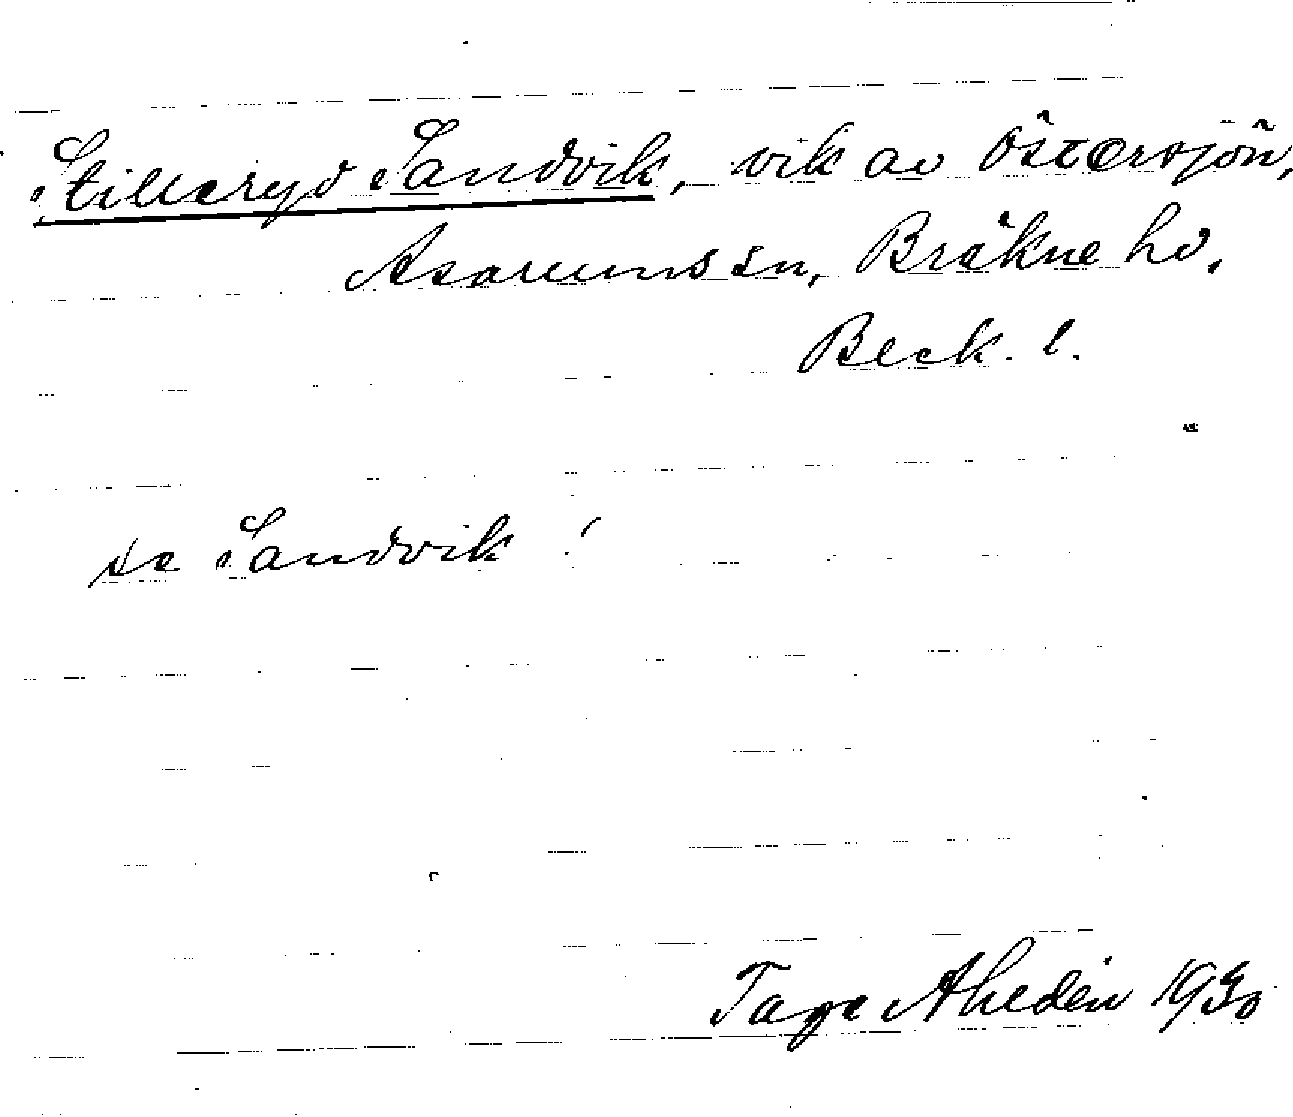 Stilleryd Sandvik, vik av Östersjön,
Asarums sn, Bräkne hd,
Bleck. l.
se Sandvik!
Tage Ahldén 1930